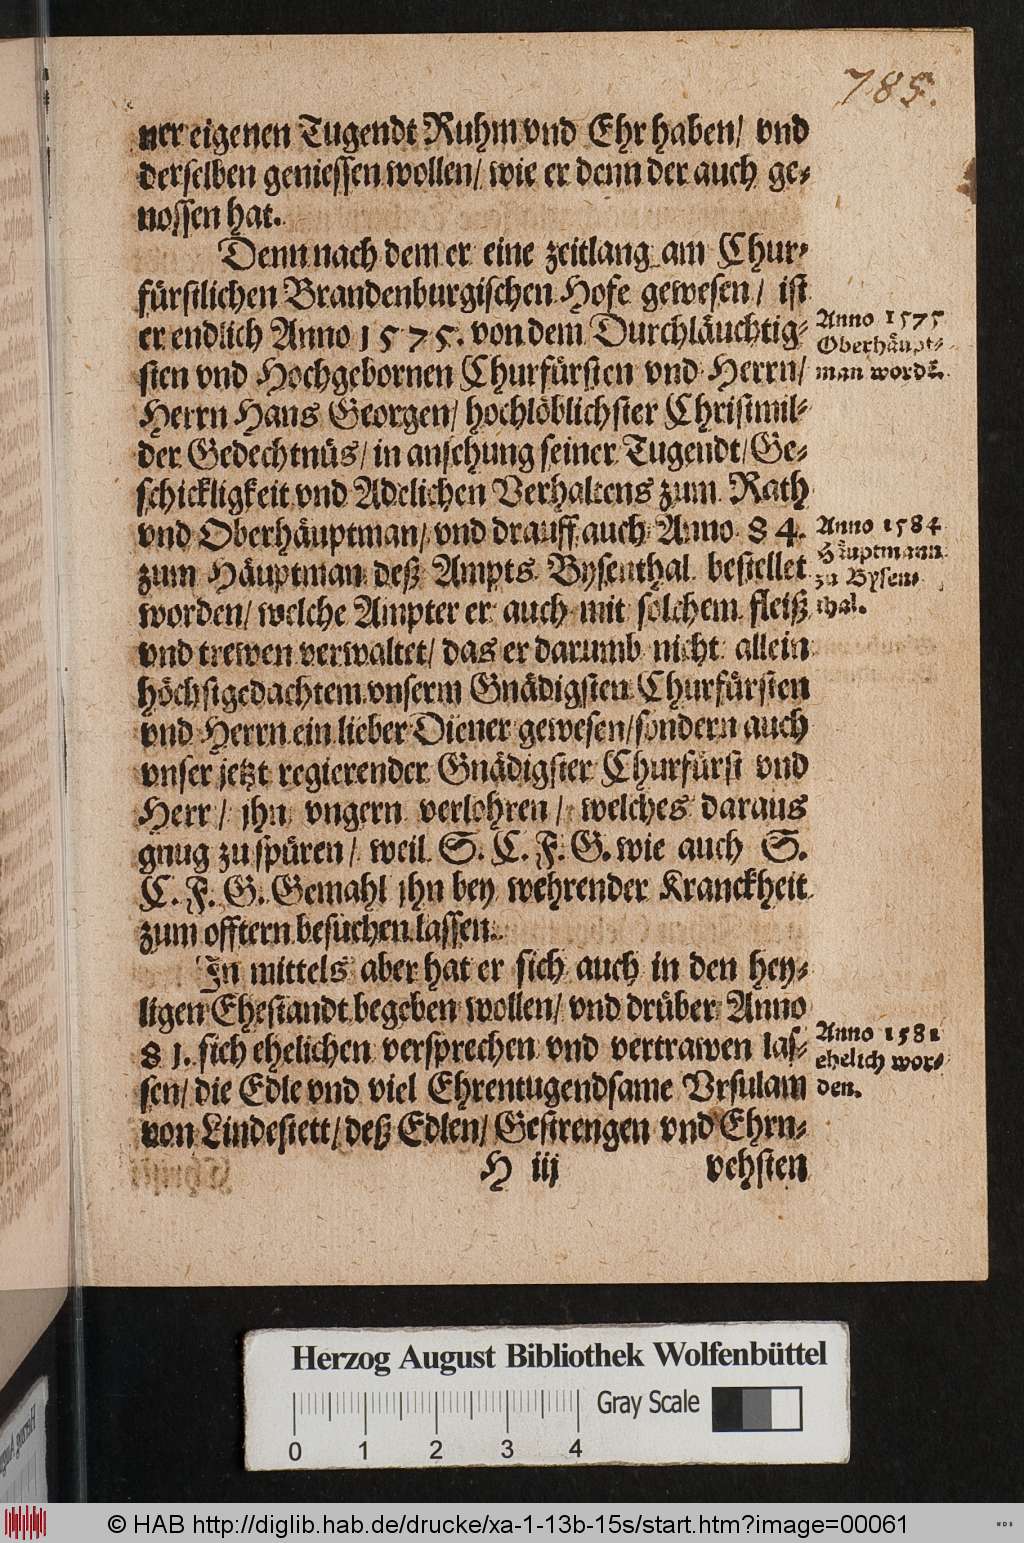 785.
ner eigenen Tugendt Ruhm vnd Ehr haben/ vnd
derselben geniessen wollen/ wie er denn der auch ge-
nossen hat.
Denn nach dem er eine zeitlang am Chur-
fürstlichen Brandenburgischen Hofe gewesen/ ist
er endlich Anno 1575. von dem Durchläuchtig-
sten vnd Hochgebornen Churfürsten vnd Herrn/
Herrn Hans Georgen/ hochlöblichster Christmil-
der Gedechtnüs/ in ansehung seiner Tugendt/ Ge-
schickligkeit vnd Adelichen Verhaltens zum Rath
vnd Oberhäuptman/ vnd drauff auch Anno 84.
zum Häuptman deß Ampts Bysenthal bestellet
worden/ welche Ampter er auch mit solchem fleiß
vnd trewen verwaltet/ das er darumb nicht allein
höchstgedachtem vnserm Gnädigsten Churfürsten
vnd Herrn ein lieber Diener gewesen/ sondern auch
vnser jetzt regierender Gnädigster Churfürst vnd
Herr/ jhn vngern verlohren/ welches daraus
gnug zu spüren/ weil S. C. F. G. wie auch S.
C. F. G. Gemahl jhn bey wehrender Kranckheit
zum offtern besuchen lassen.
In mittels aber hat er sich auch in den hey-
ligen Ehestandt begeben wollen/ vnd drüber Anno
81. sich ehelichen versprechen vnd vertrawen las-
sen/ die Edle vnd viel Ehrentugendsame Vrsulam
von Lindestett/ deß Edlen/ Gestrengen vnd Ehrn-
H iij vehsten
Anno 1575
Oberhäupt-
man wordē.
Anno 1584
Häuptmann
zu Bysen-
thal.
Anno 1581
ehelich wor-
den.
Herzog August Bibliothek Wolfenbüttel
Gray Scale
0 1 2 3 4
© HAB http://diglib.hab.de/drucke/xa-1-13b-15s/start.htm?image=00061